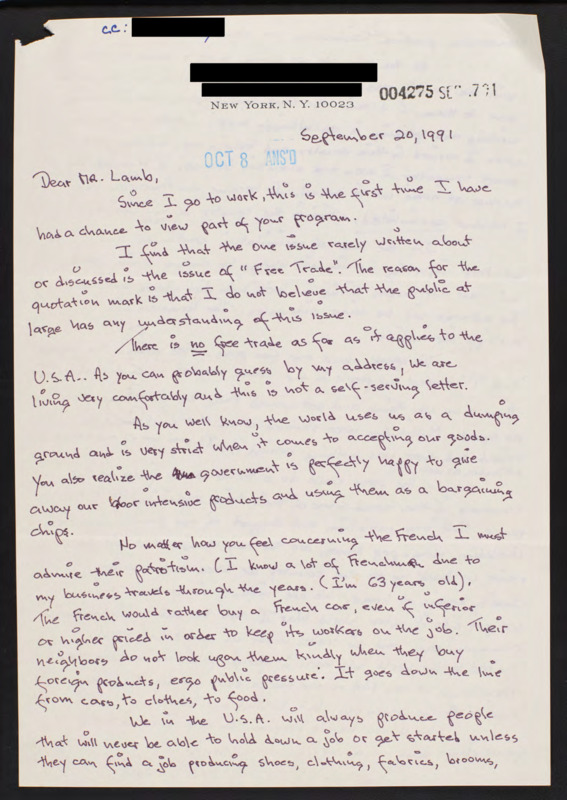 cc:
NEW YORK, N.Y. 10023
004275 SE
September 20, 1991
OCT 8 ANS'D
Dear Mr. Lamb,
Since I go to work, this is the first time I have
had a chance to view part of your program.
I find that the one issue rarely written about
or discussed is the issue of "Free Trade". The reason for the
quotation mark is that I do not believe that the public at
large has any understanding of this issue.
There is no free trade as far as it applies to the
U.S.A.. As you can probably guess by my address, we are
living very comfortably and this is not a self-serving letter.
As you well know, the world uses us as a dumping
ground and is very strict when it comes to accepting our goods.
You also realize the government is perfectly happy to give
away our labor intensive products and using them as a bargaining
chips.
No matter how you feel concerning the French I must
admire their patriotism. (I know a lot of Frenchmen due to
my business travels through the years. (I'm 63 years old).
The French would rather buy a French car, even if inferior
or higher priced in order to keep its workers on the job. Their
neighbors do not look upon them kindly when they buy
foreign products, ergo public pressure. It goes down the line
from cars, to clothes, to food.
We in the U.S.A. will always produce people
that will never be able to hold down a job or get started unless
they can find a job producing shoes, clothing, fabrics, brooms,